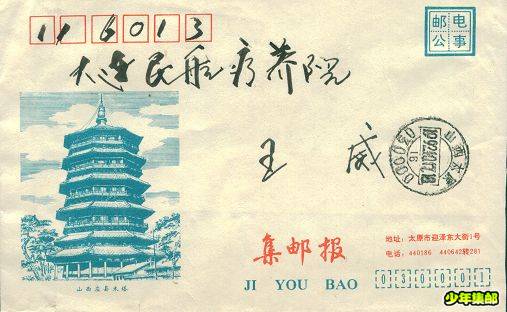 116013
邮电
公事
大连民航疗养院
王威
山西太原
030000
16
山西应县木塔
集邮报
JI YOU BAO
地址：太原市迎泽东大街1号
电话：440186 440642转281
030001
少年集邮